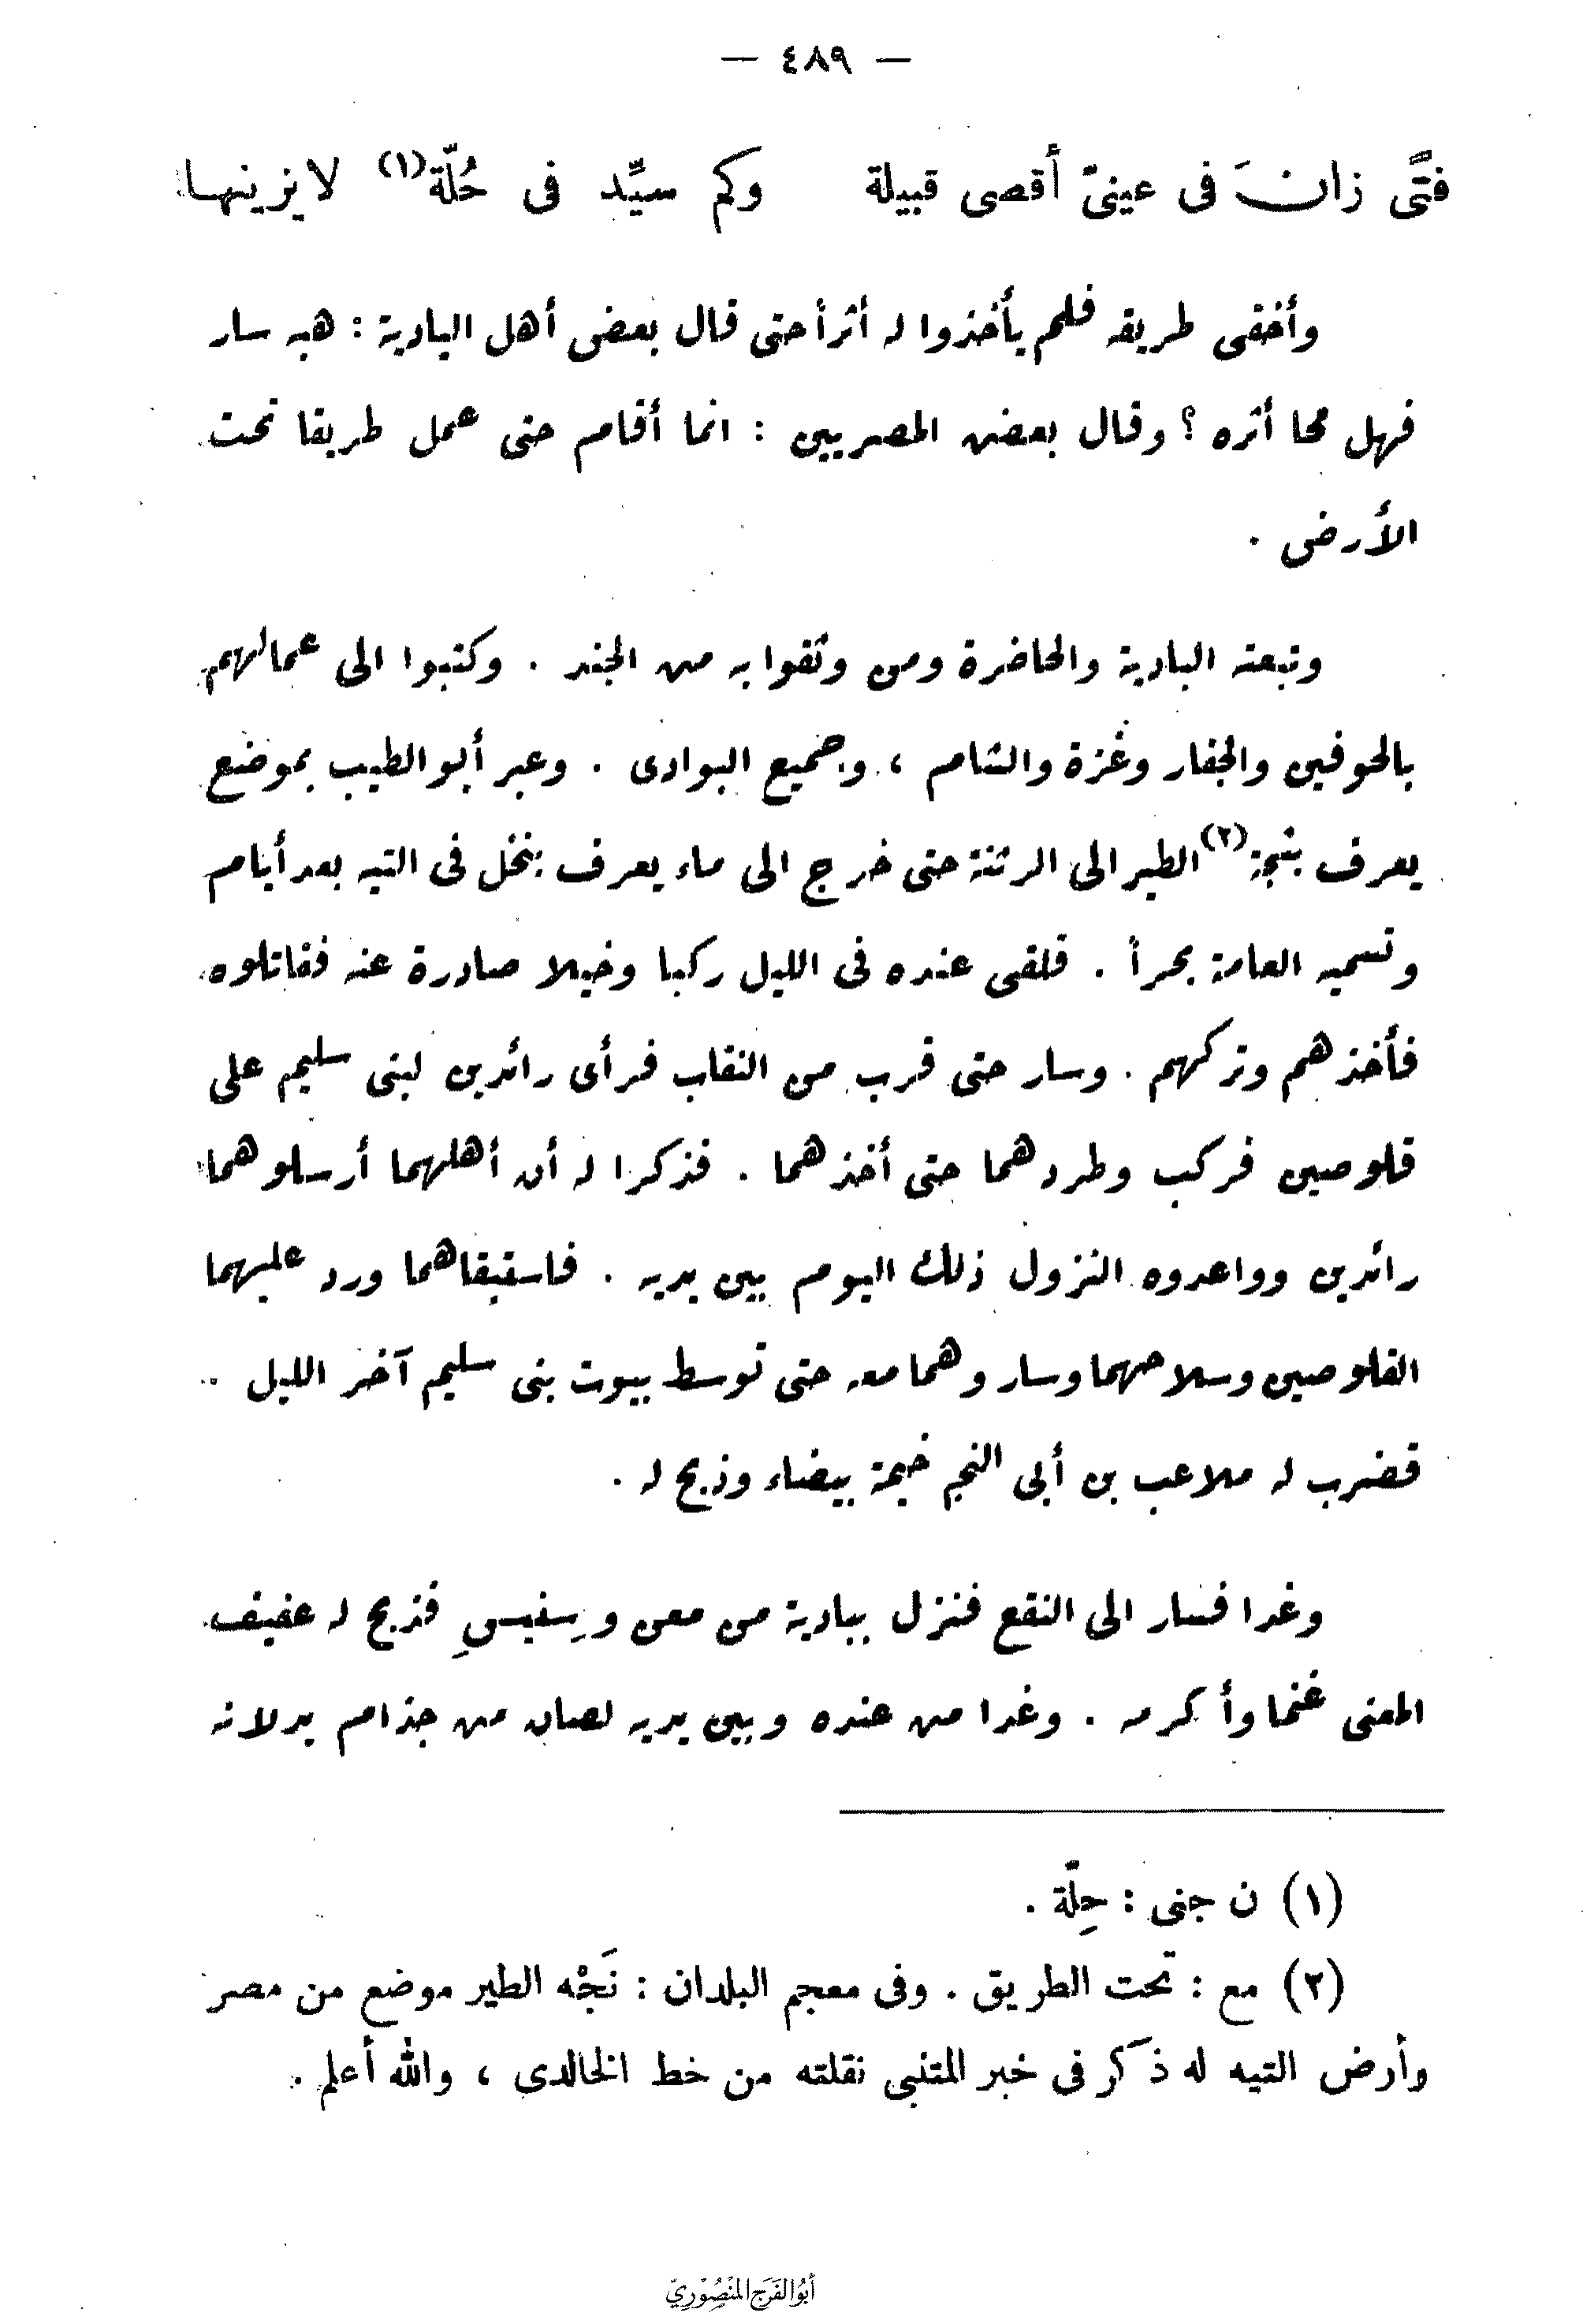 — ٤٨٩ —
فتًى زانَ فى عينىّ أقصى قبيلة وكم سيِّد فى حُلّة(١) لا يزينها
وأخفى طريقه فلم يأخذوا له أثرأ حتى قال بعض أهل البادية : هبه سار
فهل محا أثره ؟ وقال بعض المصريين : انما أقام حتى عمل طريقا تحت
الأرض .
وتبعته البادية والحاضرة ومن وثقوا به من الجند . وكتبوا الى عمالهم
بالحوفين والجفار وغزة والشام ، وجميع البوادى . وعبر أبو الطيب بموضع
يعرف بنجة(٢) الطير الى الرثنة حتى خرج الى ماء يعرف بنخل فى التيه بعد أيام
وتسميه العامة بحرأ . فلقى عنده فى الليل ركبا وخيلا صادرة عنه فقاتلوه
فأخذهم وتركهم . وسار حتى قرب من النقاب فرأى رائدين لبنى سليم على
قلوصين فركب وطردهما حتى أخذهما . فذكرا له أن أهلهما أرسلوهما
رائدين وواعدوه النزول ذلك اليوم بين يديه . فاستبقاهما ورد عليهما
القلوصين وسلاحهما وسار وهما معه حتى توسط بيوت بنى سليم آخر الليل .
فضرب له ملاعب بن أبى النجم خيمة بيضاء وذبح له .
وغدا فسار الى النقع فنزل ببادية من معن وسِنبِسِ فذبح له عفيف
المعنى غنما وأكرمه . وغدا من عنده وبين يديه لصان من جذام يدلانه
(١) ن جنى : حِلّة .
(٢) مع : تحت الطريق . وفى معجم البلدان : نَجْه الطير موضع من مصر
وأرض التيه له ذكر فى خبر المتنبى نقلته من خط الخالدى ، والله أعلم .
أبُو الفَرَج المنْصُوْرِيّ